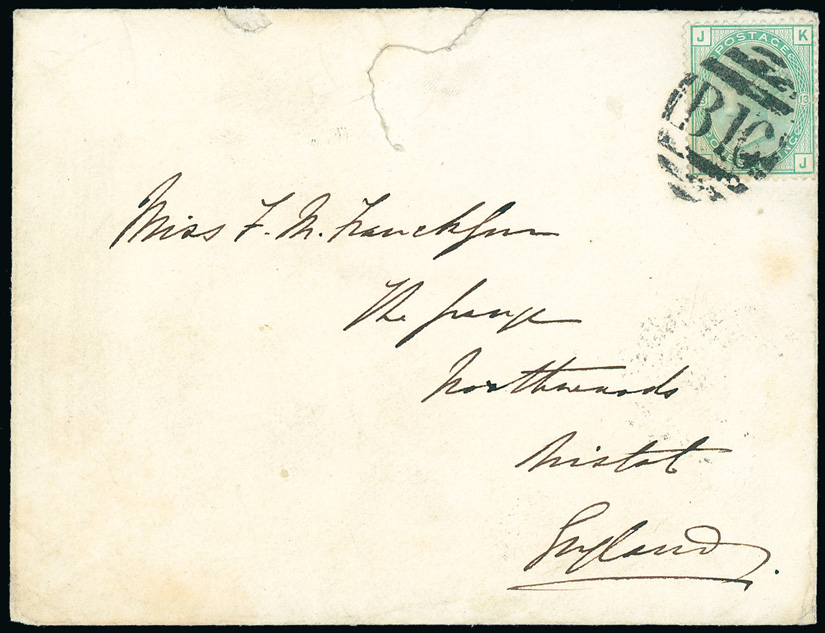 J K
POSTAGE
13
J
Miss F. M.
The Grange
Northwoods
Bristol
England.